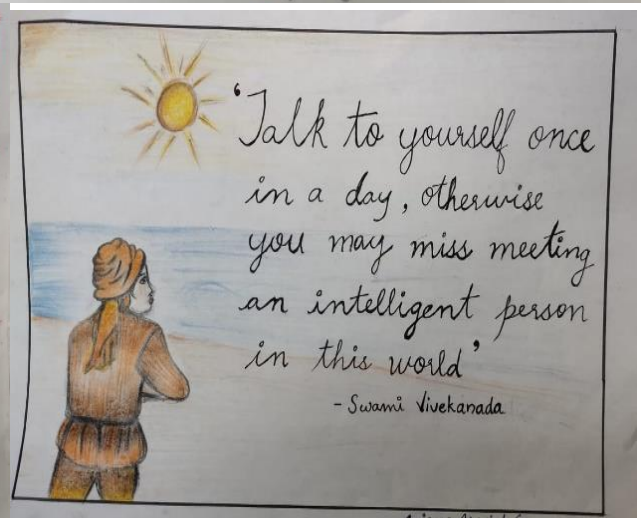 'Talk to yourself once
in a day, otherwise
you may miss meeting
an intelligent person
in this world'
- Swami Vivekanada